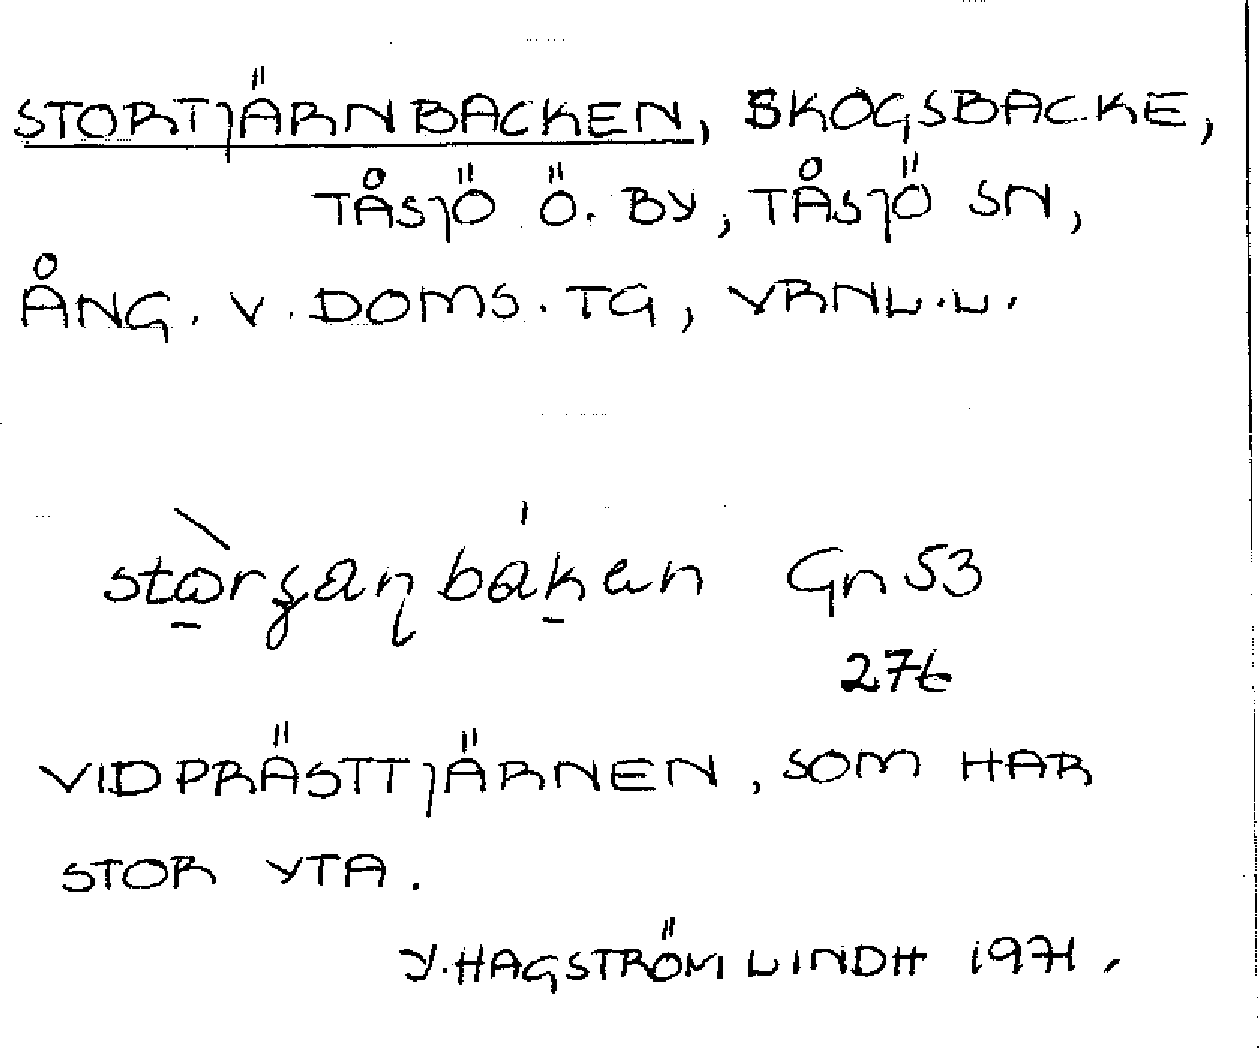 STORTJÄRNBACKEN, SKOGSBACKE,
TÅSJÖ Ö. BY, TÅSJÖ SN,
ÅNG. V. DOMS. TG, VRNL.L.
Gn 53
276
VID PRÄSTTJÄRNEN, SOM HAR
STOR YTA.
Y. HAGSTRÖM LINDH 1971.